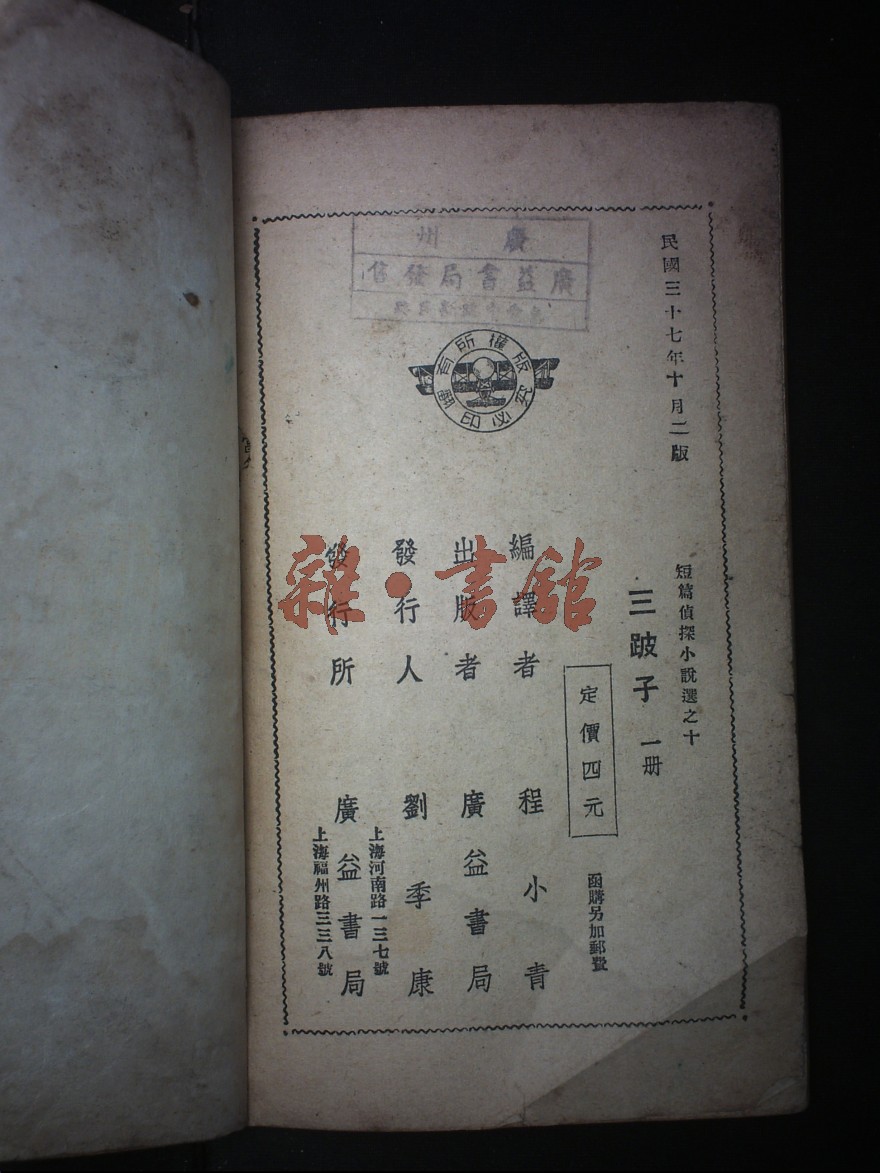 民國三十七年十月二版
短篇偵探小說選之十
三跛子 一册
定價四元
函購另加郵費
編譯者 程小青
出版者 廣益書局
發行人 劉季康
發行所 廣益書局
上海河南路一三七號
上海福州路三三八號
版權所有
翻印必究
廣州
廣益書局發售
雜·書館